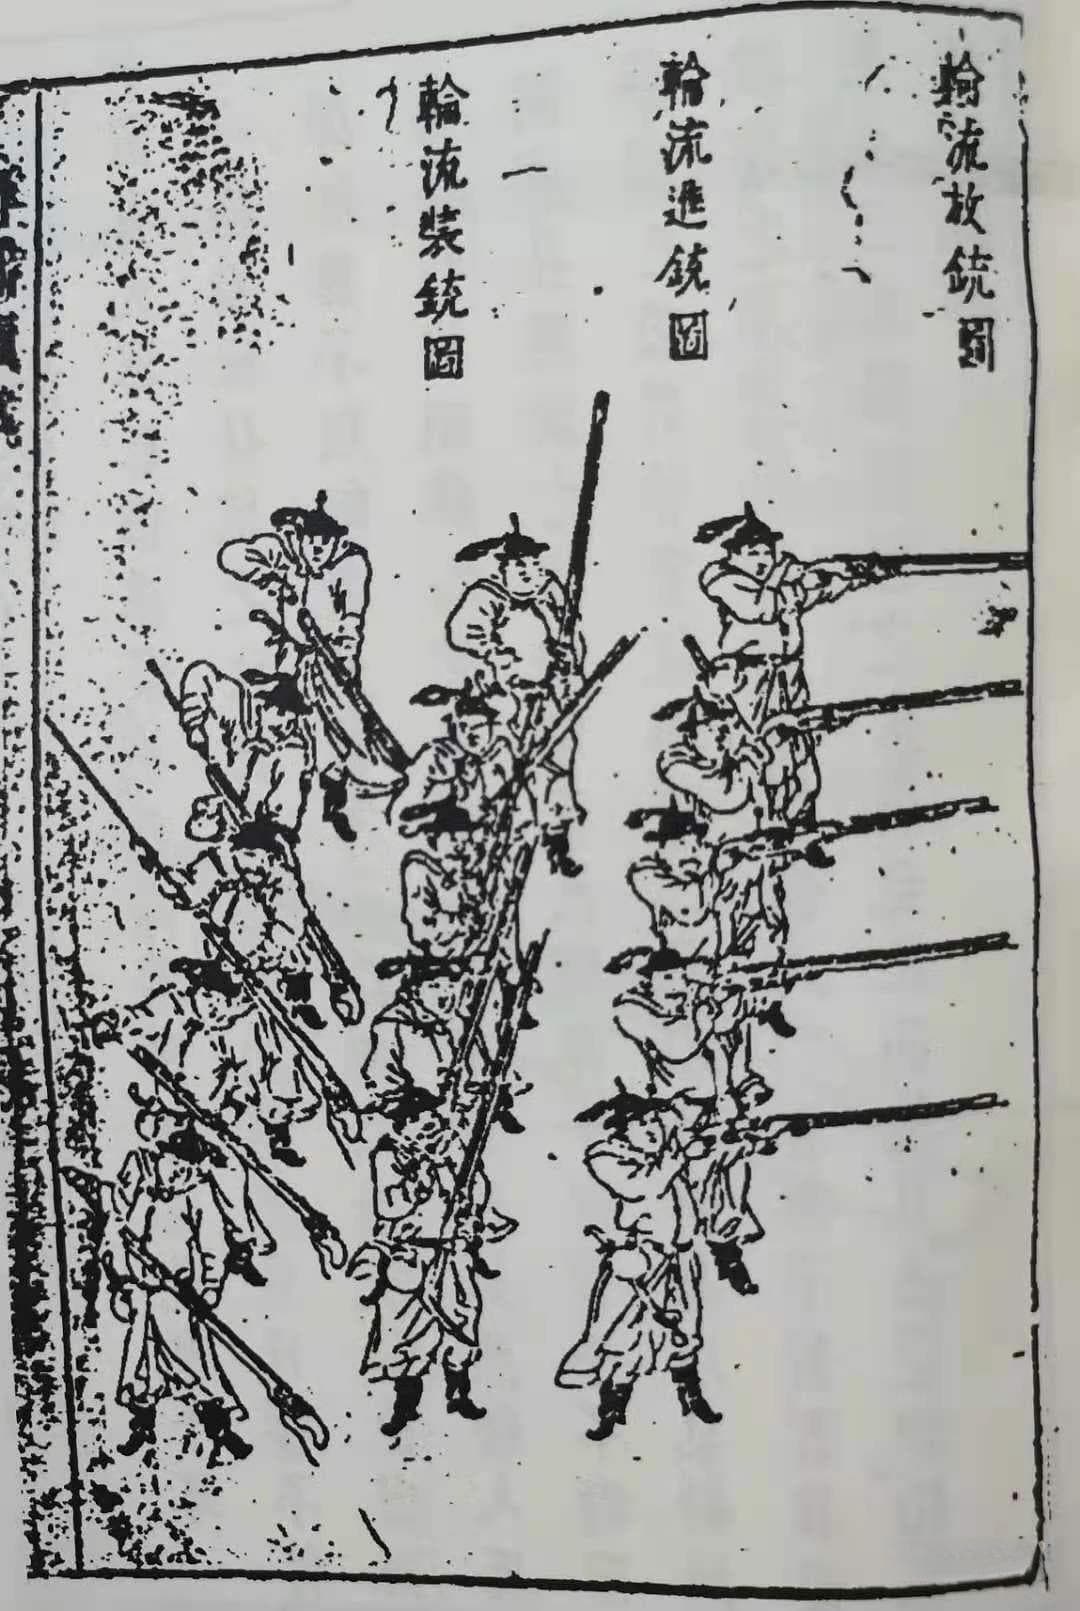 輪流放銃圖
輪流進銃圖
輪流裝銃圖